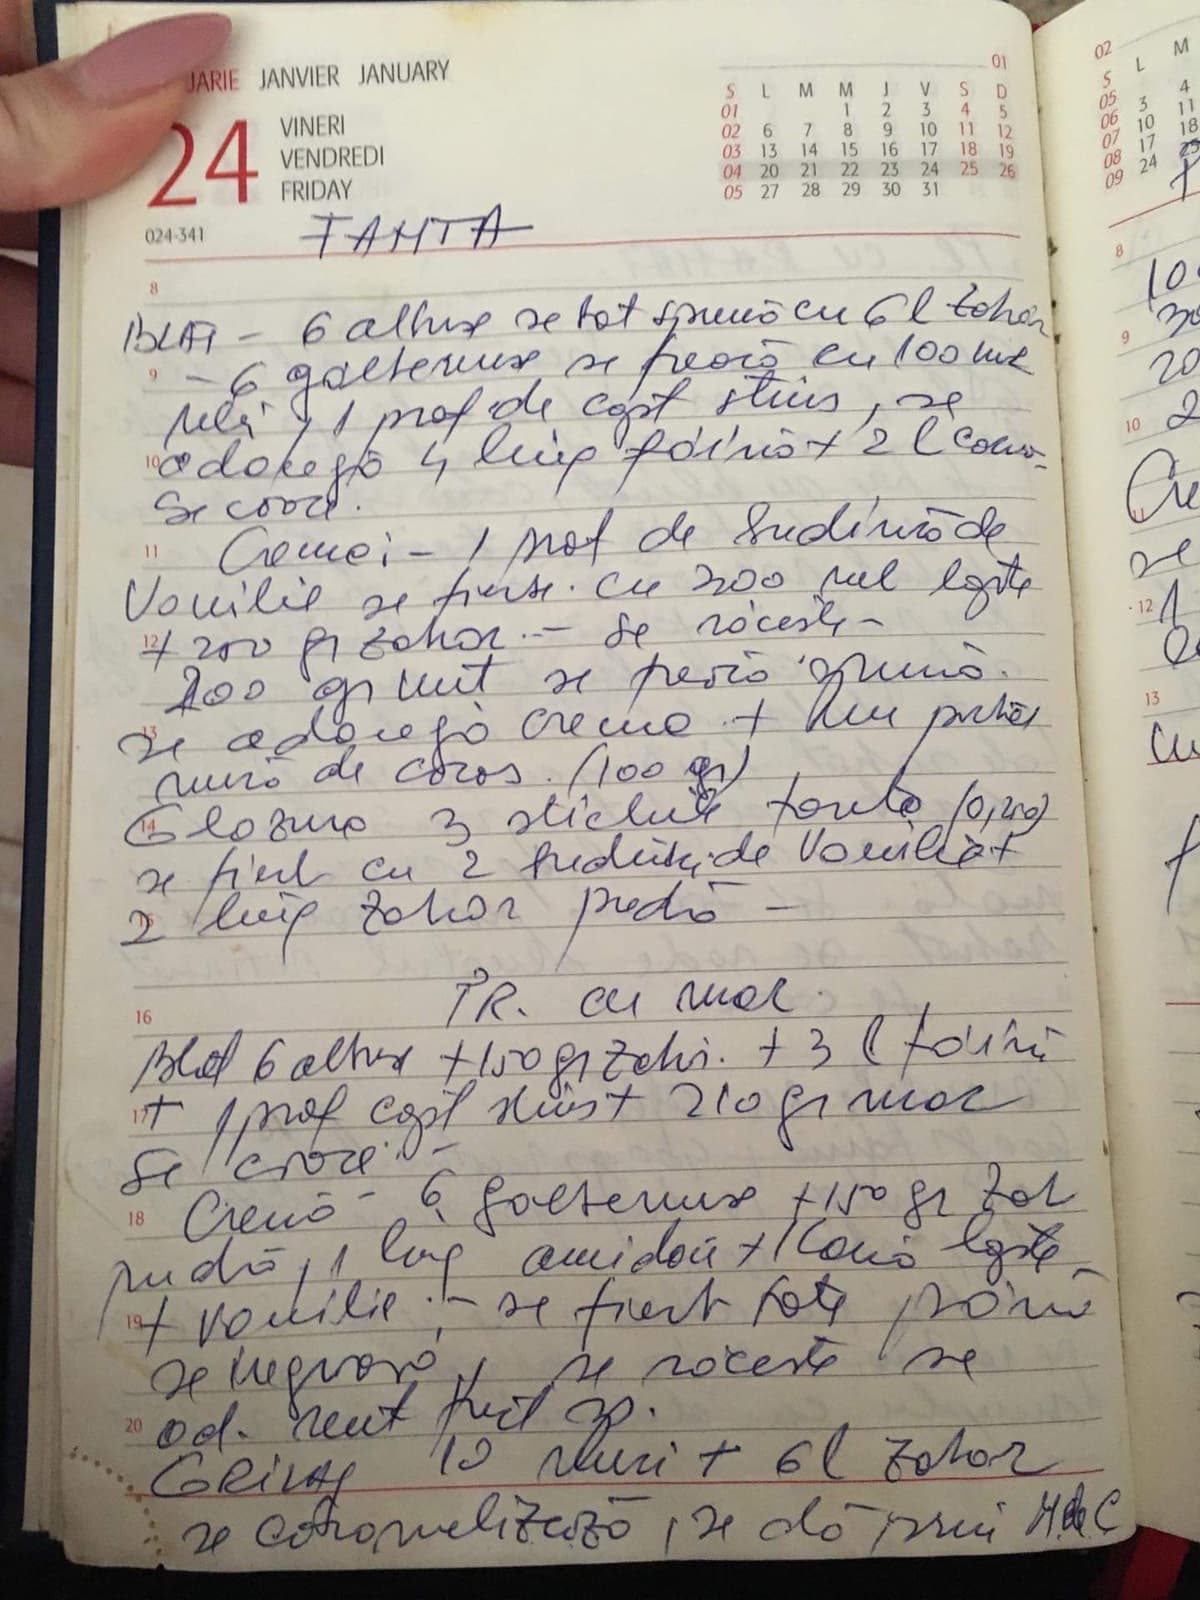 UARIE JANVIER JANUARY
24
VINERI
VENDREDI
FRIDAY
024-341
01
S L M M J V S D
01 1 2 3 4 5
02 6 7 8 9 10 11 12
03 13 14 15 16 17 18 19
04 20 21 22 23 24 25 26
05 27 28 29 30 31
FANTA
8
BLAT - 6 albușe se bat spumă cu 6 l zahăr
9 - 6 gălbenușe se freacă cu 100 ml
ulei, 1 praf de copt stins, se
10 adaugă 4 ling făină + 2 l cacao
Se coace.
11 Crema: - 1 praf de budincă de
Vanilie se fierbe cu 200 ml lapte
12 + 200 gr zahăr - se răcește -
200 gr unt se freacă spumă.
13 se adaugă crema +
nucă de cocos. (100 gr)
14 Glazura 3 sticluțe fanta (0,250)
se fierb cu 2 budinci de Vanilie +
2 ling zahăr pudră -
TR. cu mac
16
Blat 6 albușe + 150 gr zahăr + 3 l făină
17 + 1 praf copt stins + 210 gr mac
Se coace -
18 Cremă - 6 gălbenușe + 150 gr zah
pudră, 1 ling amidon + 1 cană lapte
19 + vanilie - se fierb toate până
se îngroașă, se răcește se
20 ad. unt frecat sp.
GRILIAJ 10 nuci + 6 l zahăr
se caramelizează, se dă prin M de C
02
S L M
05 3 4
06 10 11
07 17 18
08 24 25
09
8
9
10
11
12
13